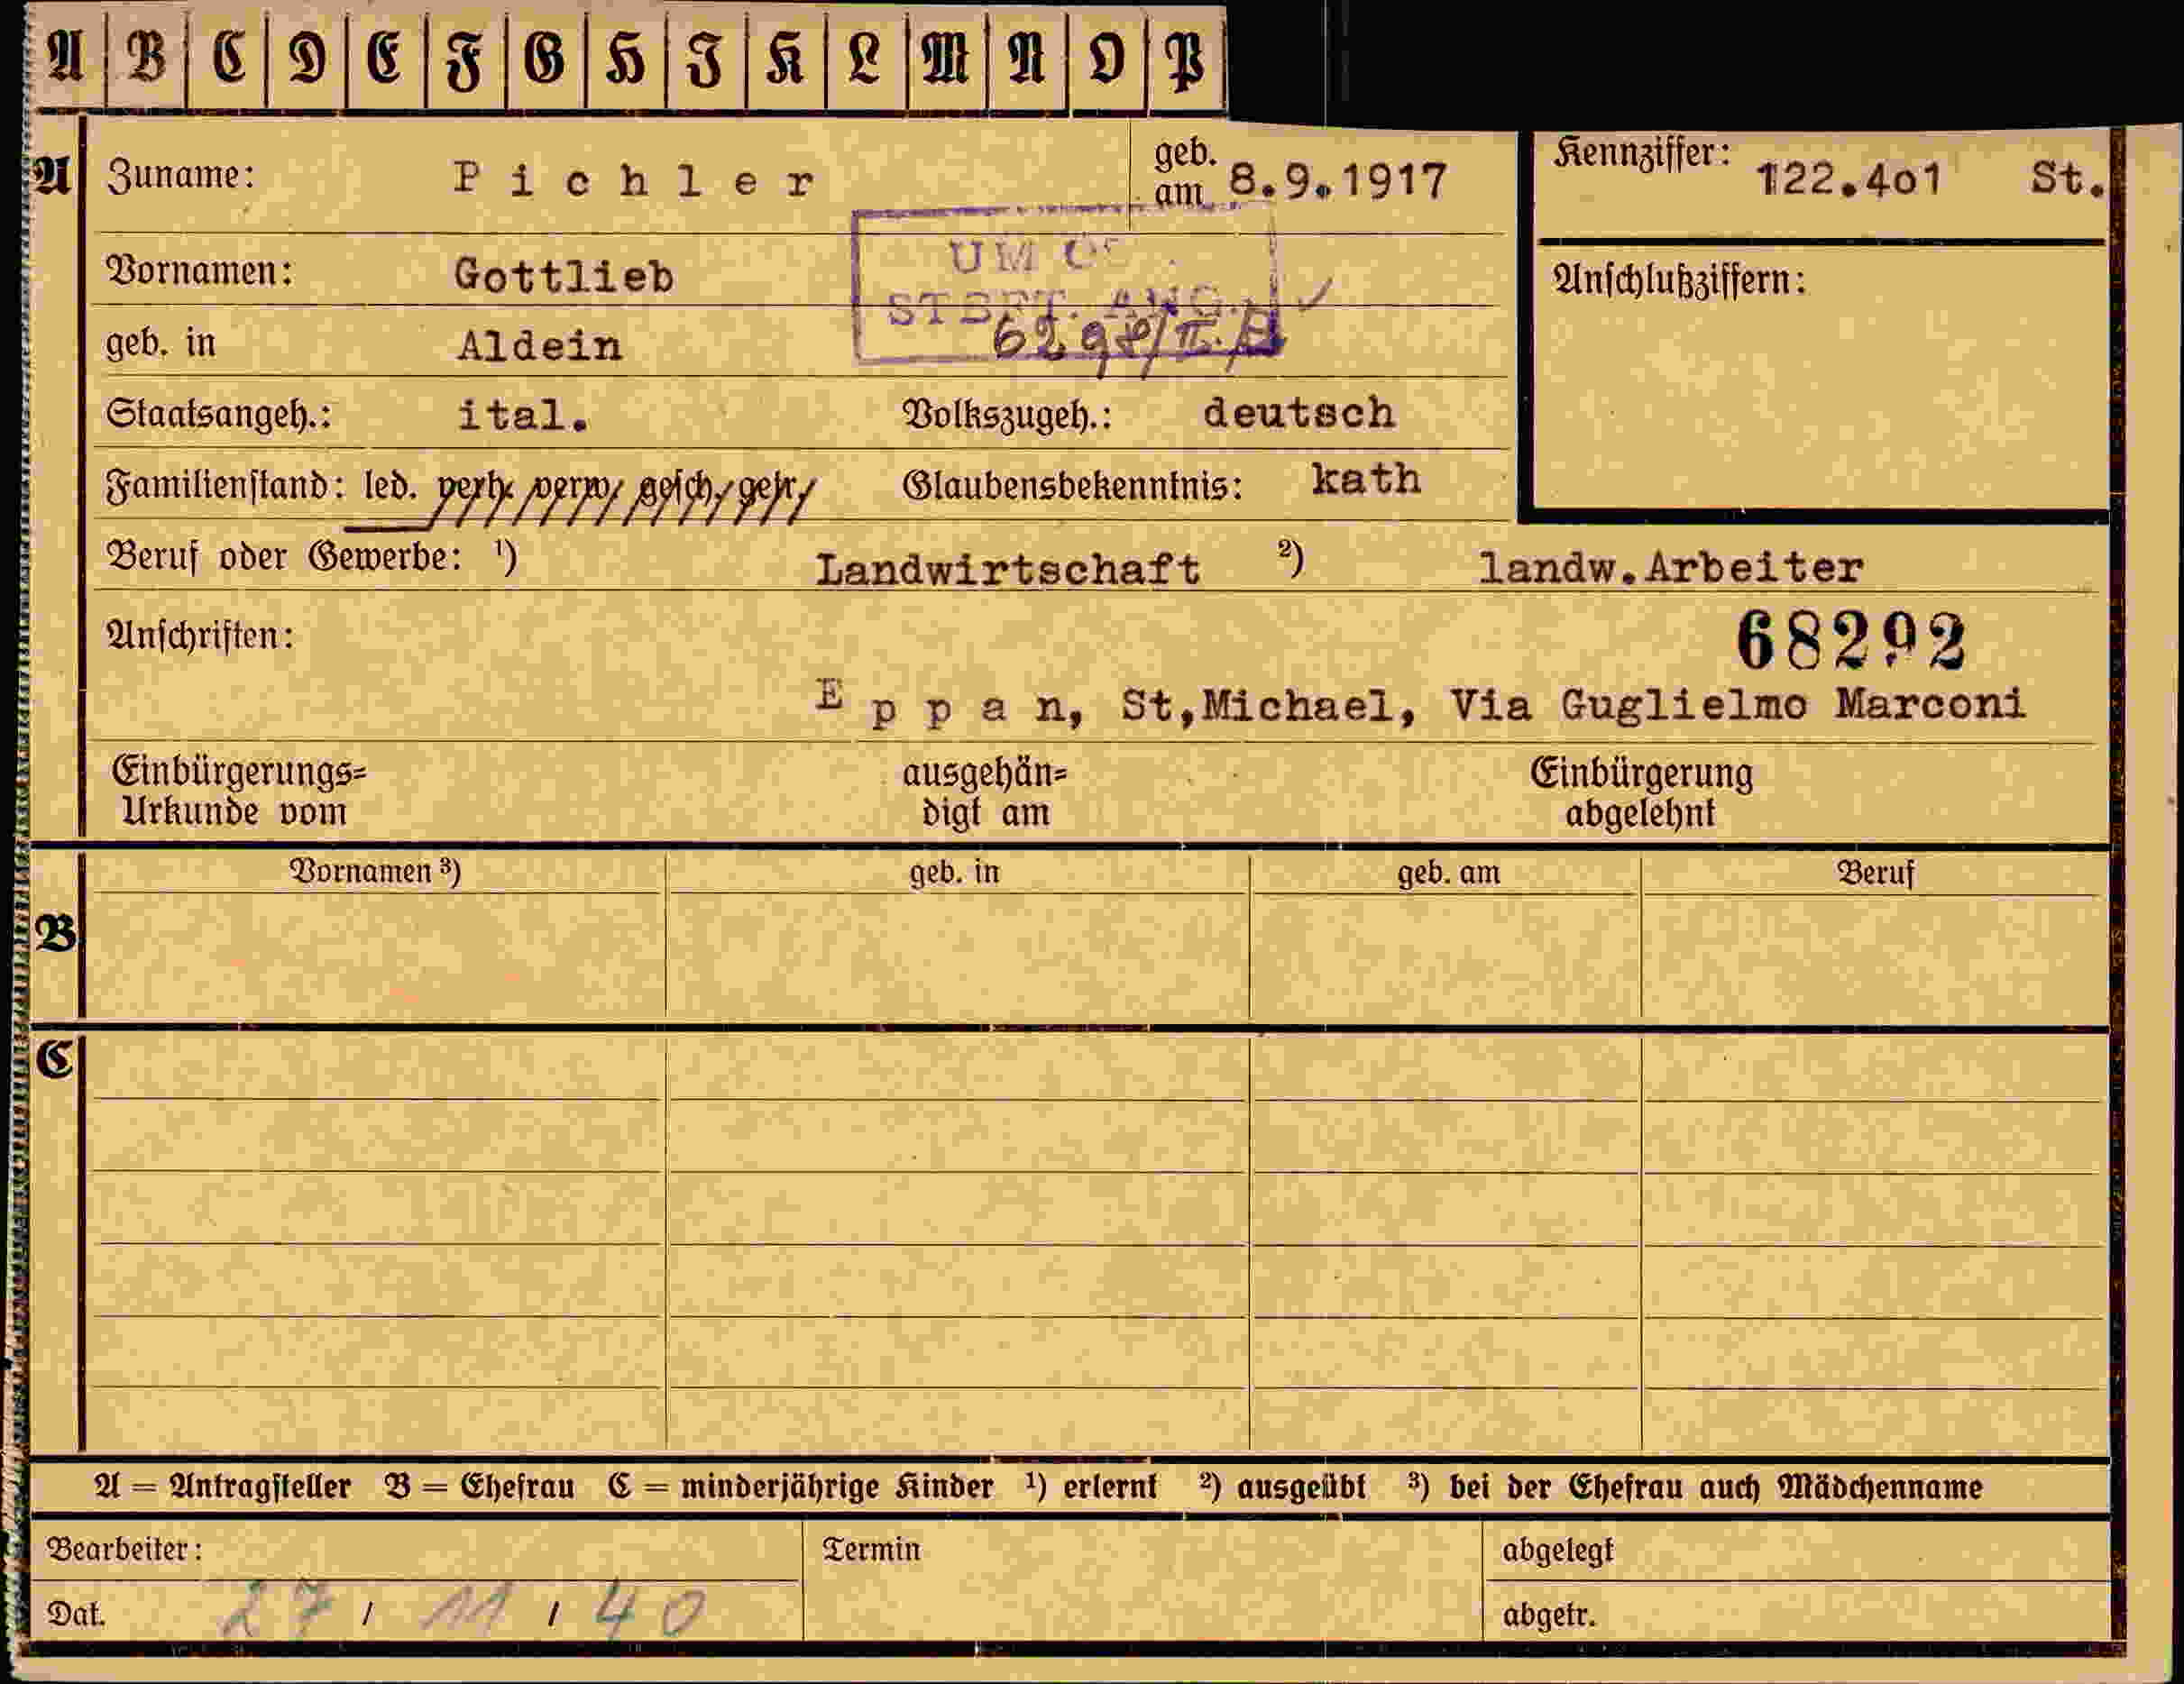 A B C D E F G H I K L M N O P
A Zuname: Pichler geb. am 8.9.1917 Kennziffer: 122.4o1 St.
Vornamen: Gottlieb Anschlußziffern:
UM
geb. in Aldein
Staatsangeh.: ital. Volkszugeh.: deutsch
Familienstand: led. verh. verw. gesch. getr. Glaubensbekenntnis: kath
Beruf oder Gewerbe: ¹) Landwirtschaft ²) landw.Arbeiter
Anschriften: 68292
Eppan, St,Michael, Via Guglielmo Marconi
Einbürgerungs= ausgehän= Einbürgerung
Urkunde vom digt am abgelehnt
Vornamen ³) geb. in geb. am Beruf
B
C
A = Antragsteller B = Ehefrau C = minderjährige Kinder ¹) erlernt ²) ausgeübt ³) bei der Ehefrau auch Mädchenname
Bearbeiter: Termin abgelegt
Dat. 27 / 11 / 40 abgetr.